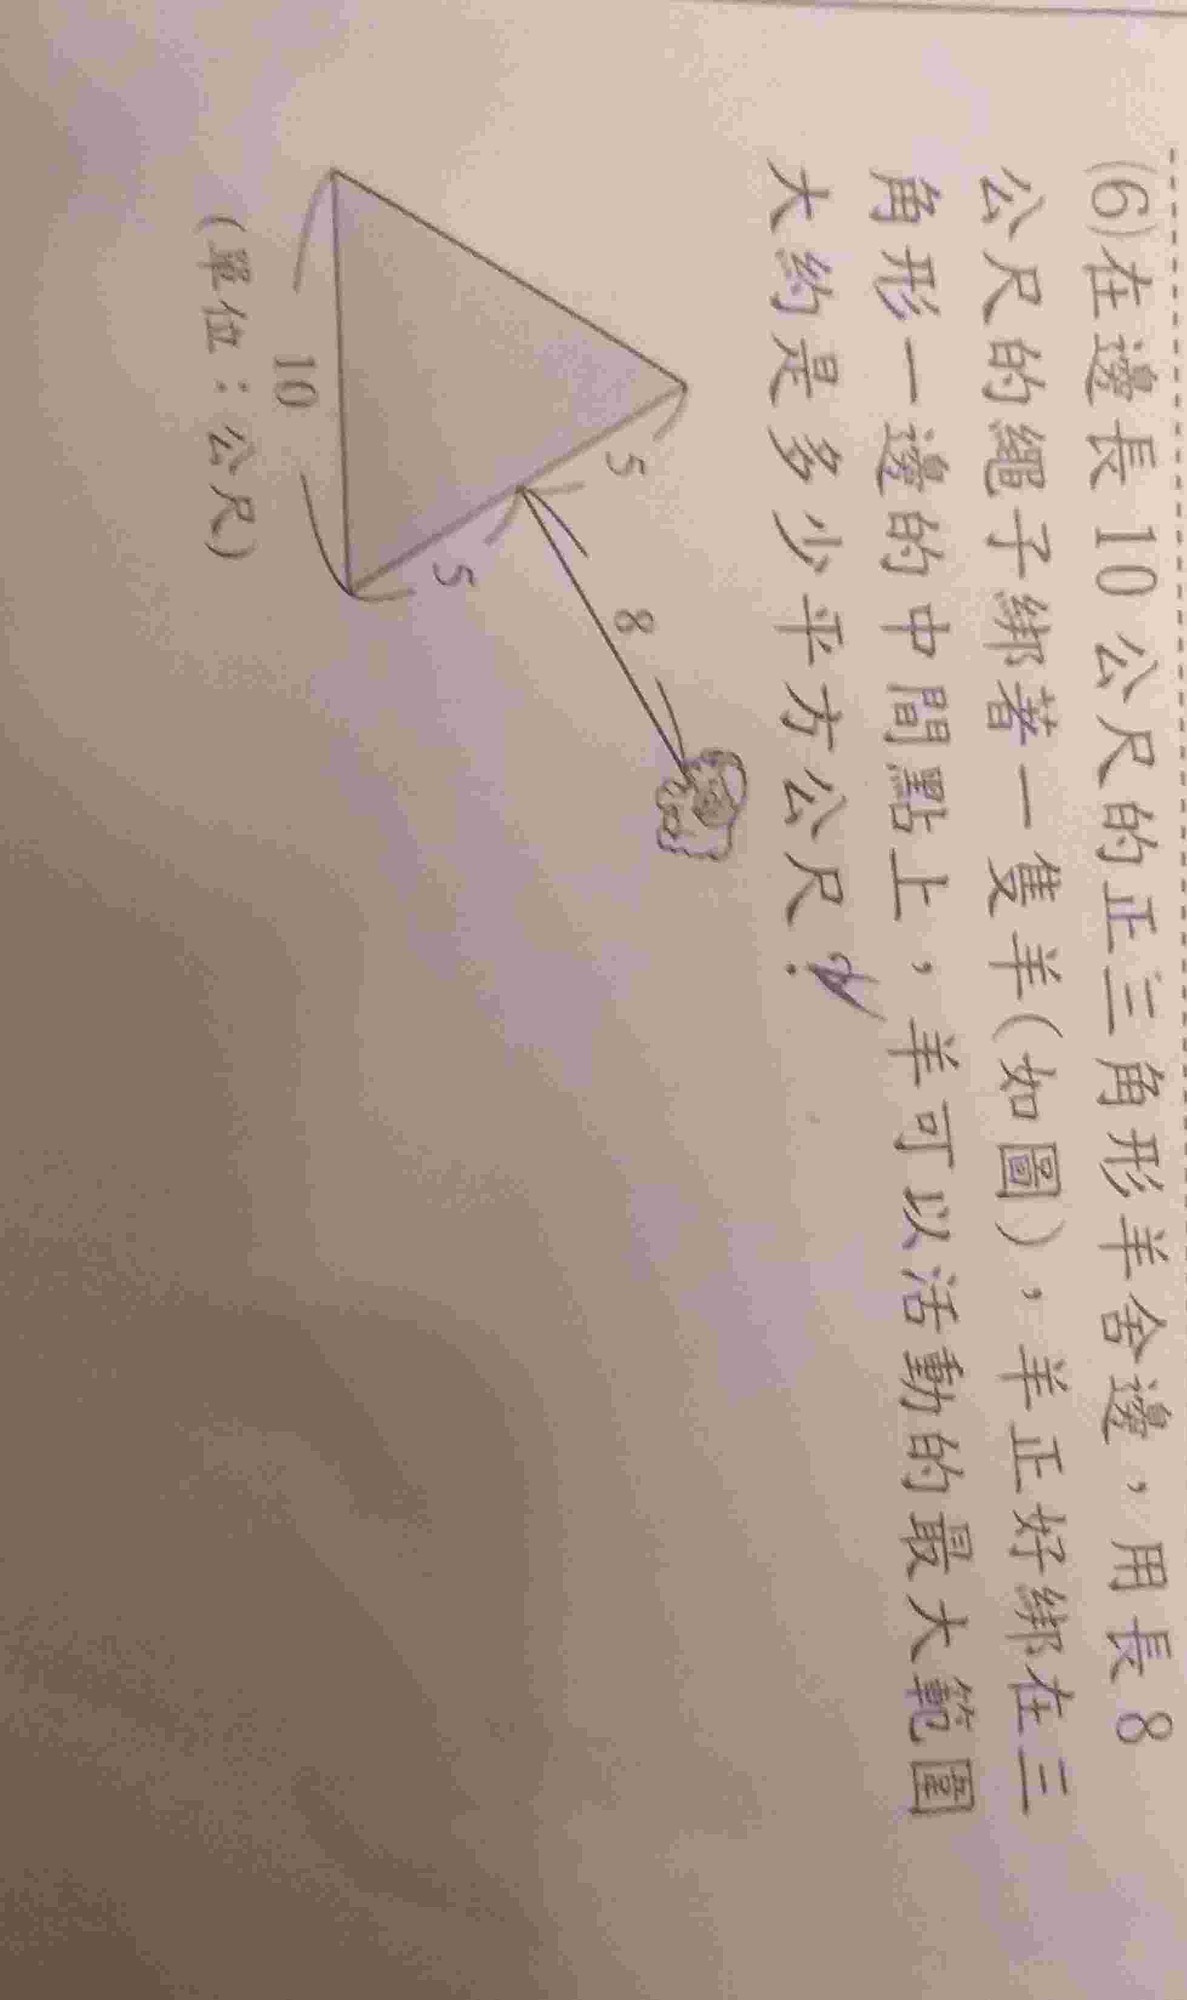 (6)在邊長 10 公尺的正三角形羊舍邊，用長 8
公尺的繩子綁著一隻羊(如圖)，羊正好綁在三
角形一邊的中間點上，羊可以活動的最大範圍
大約是多少平方公尺？
5
8
5
10
(單位：公尺)